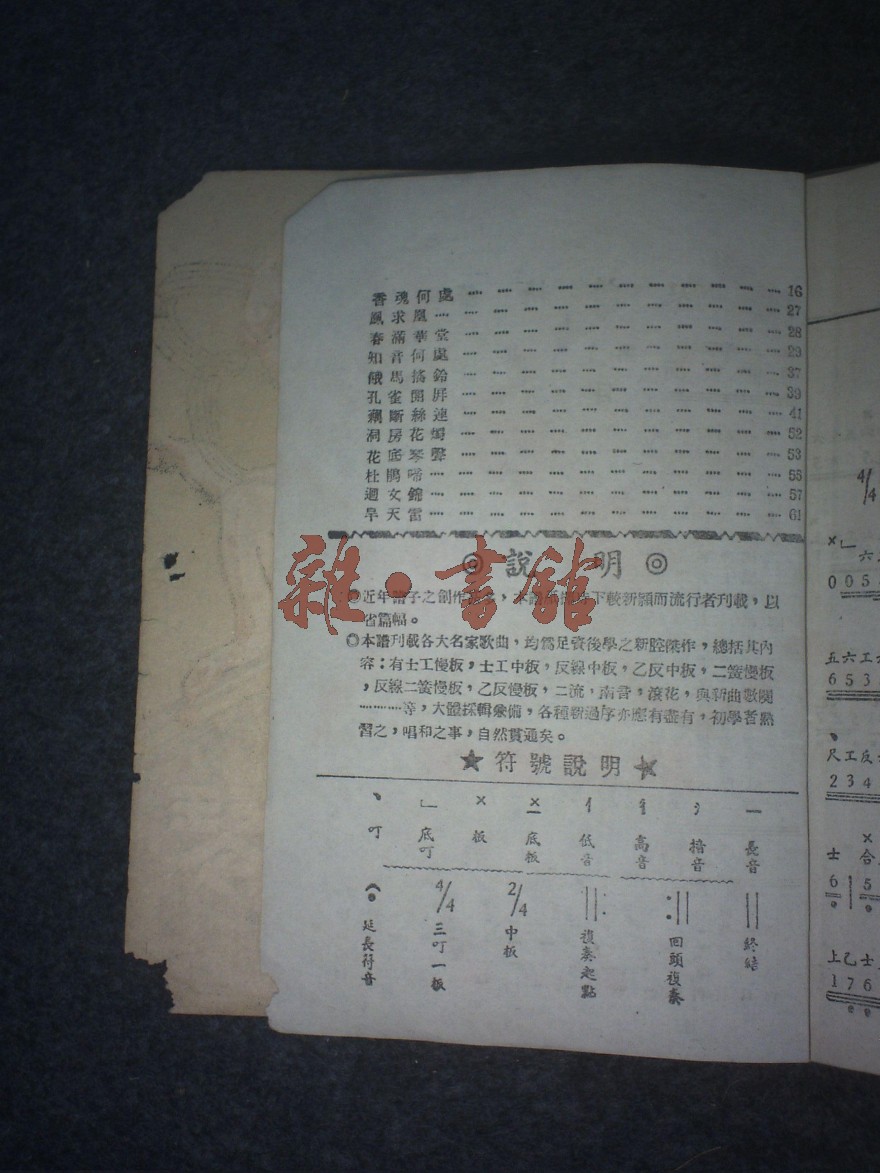 香魂何處 16
鳳求凰 27
春滿華堂 28
知音何處 29
餓馬搖鈴 37
孔雀開屏 39
藕斷絲連 41
洞房花燭 52
花底琴聲 53
杜鵑啼 55
迴文錦 57
旱天雷 61
雜·書館
◎說明◎
◎近年譜子之創作 本譜 下較新穎而流行者刊載，以
省篇幅。
◎本譜刊載各大名家歌曲，均爲足資後學之新腔傑作，總括其內
容：有士工慢板，士工中板，反線中板，乙反中板，二簧慢板
，反線二簧慢板，乙反慢板，二流，南音，滾花，與新曲數闋
…………等，大體採輯兼備，各種新過序亦應有盡有，初學者熟
習之，唱和之事，自然貫通矣。
★符號說明★
丶 叮
∟ 底叮
× 板
底板
低音
高音
揞音
一 長音
延長符音
4/4 三叮一板
2/4 中板
複奏起點
回頭複奏
終結
4/4
×∟
六
0 0 5
五六工
6 5 3
尺工反
2 3 4
士 合
6 5
上乙士
1 7 6